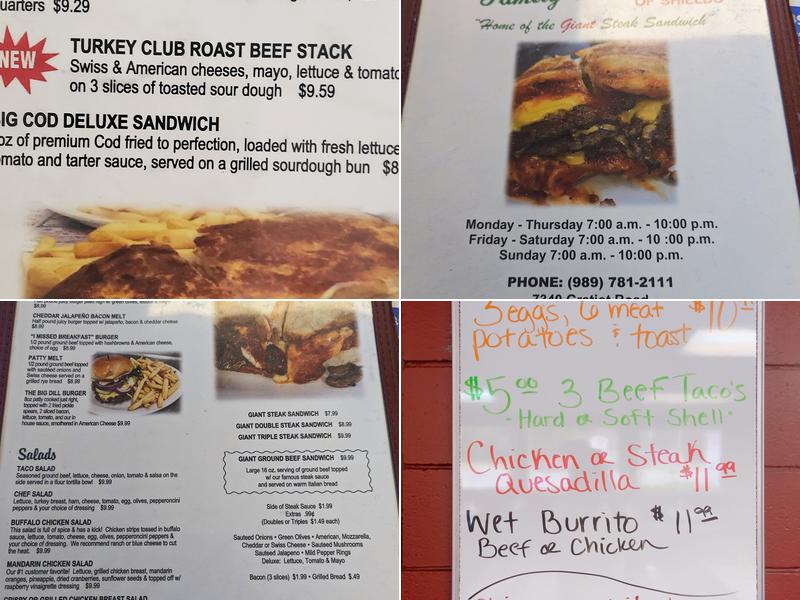 uarters $9.29
NEW
TURKEY CLUB ROAST BEEF STACK
Swiss & American cheeses, mayo, lettuce & tomato
on 3 slices of toasted sour dough $9.59
IG COD DELUXE SANDWICH
oz of premium Cod fried to perfection, loaded with fresh lettuce
omato and tarter sauce, served on a grilled sourdough bun $8
OF SHIELDS
"Home of the Giant Steak Sandwich"
Monday - Thursday 7:00 a.m. - 10:00 p.m.
Friday - Saturday 7:00 a.m. - 10 :00 p.m.
Sunday 7:00 a.m. - 10:00 p.m.
PHONE: (989) 781-2111
7240 Gratiot Road
$8.99
CHEDDAR JALAPEÑO BACON MELT
Half pound juicy burger topped w/ jalapeño, bacon & cheddar cheese
$8.99
"I MISSED BREAKFAST" BURGER
1/2 pound ground beef topped with hashbrowns & American cheese,
choice of egg $8.99
PATTY MELT
1/2 pound ground beef topped
with sautéed onions and
Swiss cheese served on a
grilled rye bread $8.99
THE BIG DILL BURGER
8oz patty cooked just right,
topped with 2 fried pickle
spears, 2 sliced bacon,
lettuce, tomato, and our in
house sauce, smothered in American Cheese $9.99
Salads
TACO SALAD
Seasoned ground beef, lettuce, cheese, onion, tomato & salsa on the
side served in a flour tortilla bowl $9.99
CHEF SALAD
Lettuce, turkey breast, ham, cheese, tomato, egg, olives, pepperoncini
peppers & your choice of dressing $9.99
BUFFALO CHICKEN SALAD
This salad is full of spice & has a kick! Chicken strips tossed in buffalo
sauce, lettuce, tomato, cheese, egg, olives, pepperoncini peppers &
your choice of dressing. We recommend ranch or blue cheese to cut
the heat. $9.99
MANDARIN CHICKEN SALAD
Our #1 customer favorite! Lettuce, grilled chicken breast, mandarin
oranges, pineapple, dried cranberries, sunflower seeds & topped off w/
raspberry vinaigrette dressing $9.99
CRISPY OR GRILLED CHICKEN BREAST SALAD
GIANT STEAK SANDWICH $7.99
GIANT DOUBLE STEAK SANDWICH $8.99
GIANT TRIPLE STEAK SANDWICH $9.99
GIANT GROUND BEEF SANDWICH $9.99
Large 16 oz, serving of ground beef topped
w/ our famous steak sauce
and served on warm Italian bread
Side of Steak Sauce $1.99
Extras .99¢
(Doubles or Triples $1.49 each)
Sauteed Onions • Green Olives • American, Mozzarella,
Cheddar or Swiss Cheese • Sauteed Mushrooms
Sauteed Jalapeño • Mild Pepper Rings
Deluxe: Lettuce, Tomato & Mayo
Bacon (3 slices) $1.99 • Grilled Bread $.49
3 eggs, 6 meat $10
potatoes & toast
$5.00 3 Beef Taco's
- Hard or Soft Shell -
Chicken or Steak
Quesadilla $11.99
Wet Burrito $11.99
Beef or Chicken